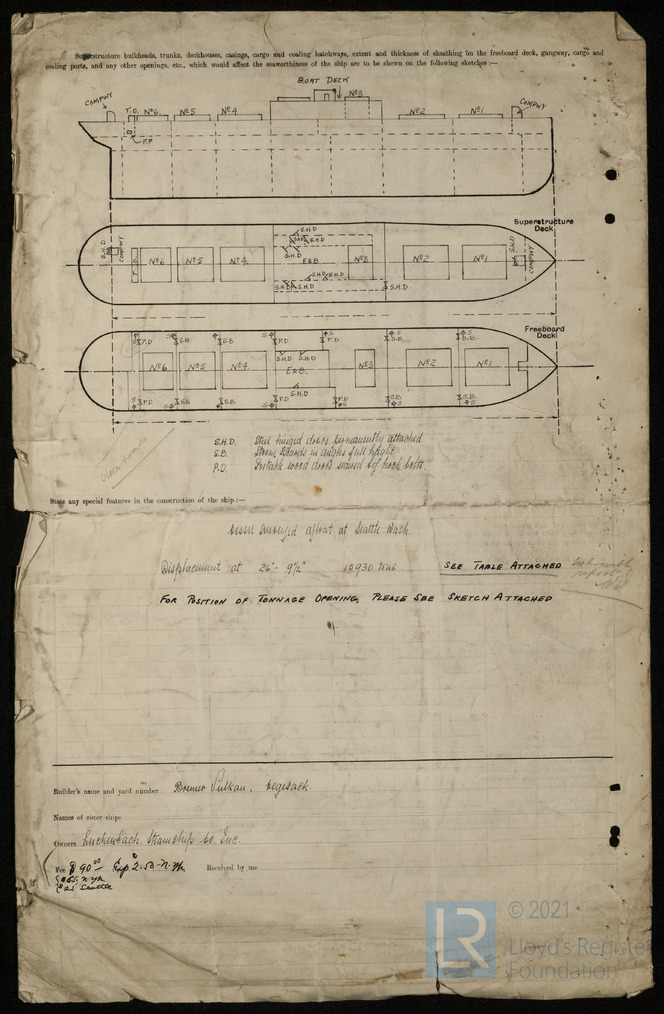 Superstructure bulkheads, trunks, deckhouses, casings, cargo and coaling hatchways, extent and thickness of sheathing on the freeboard deck, gangway, cargo and
coaling ports, and any other openings, etc., which would affect the seaworthiness of the ship are to be shown on the following sketches :—
BOAT DECK
COMPWY T.O. Nº6 Nº5 Nº4 Nº3 Nº2 Nº1 COMPWY
P.P
Superstructure
Deck
S.H.D COMPWY Nº6 Nº5 Nº4 S.H.D S.H.D S.H.D E&B S.H.D S.H.D S.H.D S.H.D Nº3 S.H.D Nº2 Nº1 S.H.D COMPWY
Freeboard
Deck
P.D S.B. S.B. P.D P.D S.B. S.B.
Nº6 Nº5 Nº4 S.H.D S.H.D E&B. S.H.D Nº3 Nº2 Nº1
P.D S.B. S.B. P.D P.D S.B. S.B.
S.H.D. Steel hinged doors permanently attached
S.B. Storm Boards in angles full height
P.D. Portable wood doors secured by hook bolts
State any special features in the construction of the ship :—
Vessel surveyed afloat at Seattle Wash.
Displacement at 26'- 9½" 15930 tons SEE TABLE ATTACHED
FOR POSITION OF TONNAGE OPENING, PLEASE SEE SKETCH ATTACHED
Builder's name and yard number Bremer Vulkan. Vegesack.
Names of sister ships
Owners Luckenbach Steamship Co. Inc.
Fee $90.00 Exp 2.50 - N.Yk Received by me
$65. N.Yk
$25 Seattle
LR © 2021
Lloyd's Register
Foundation